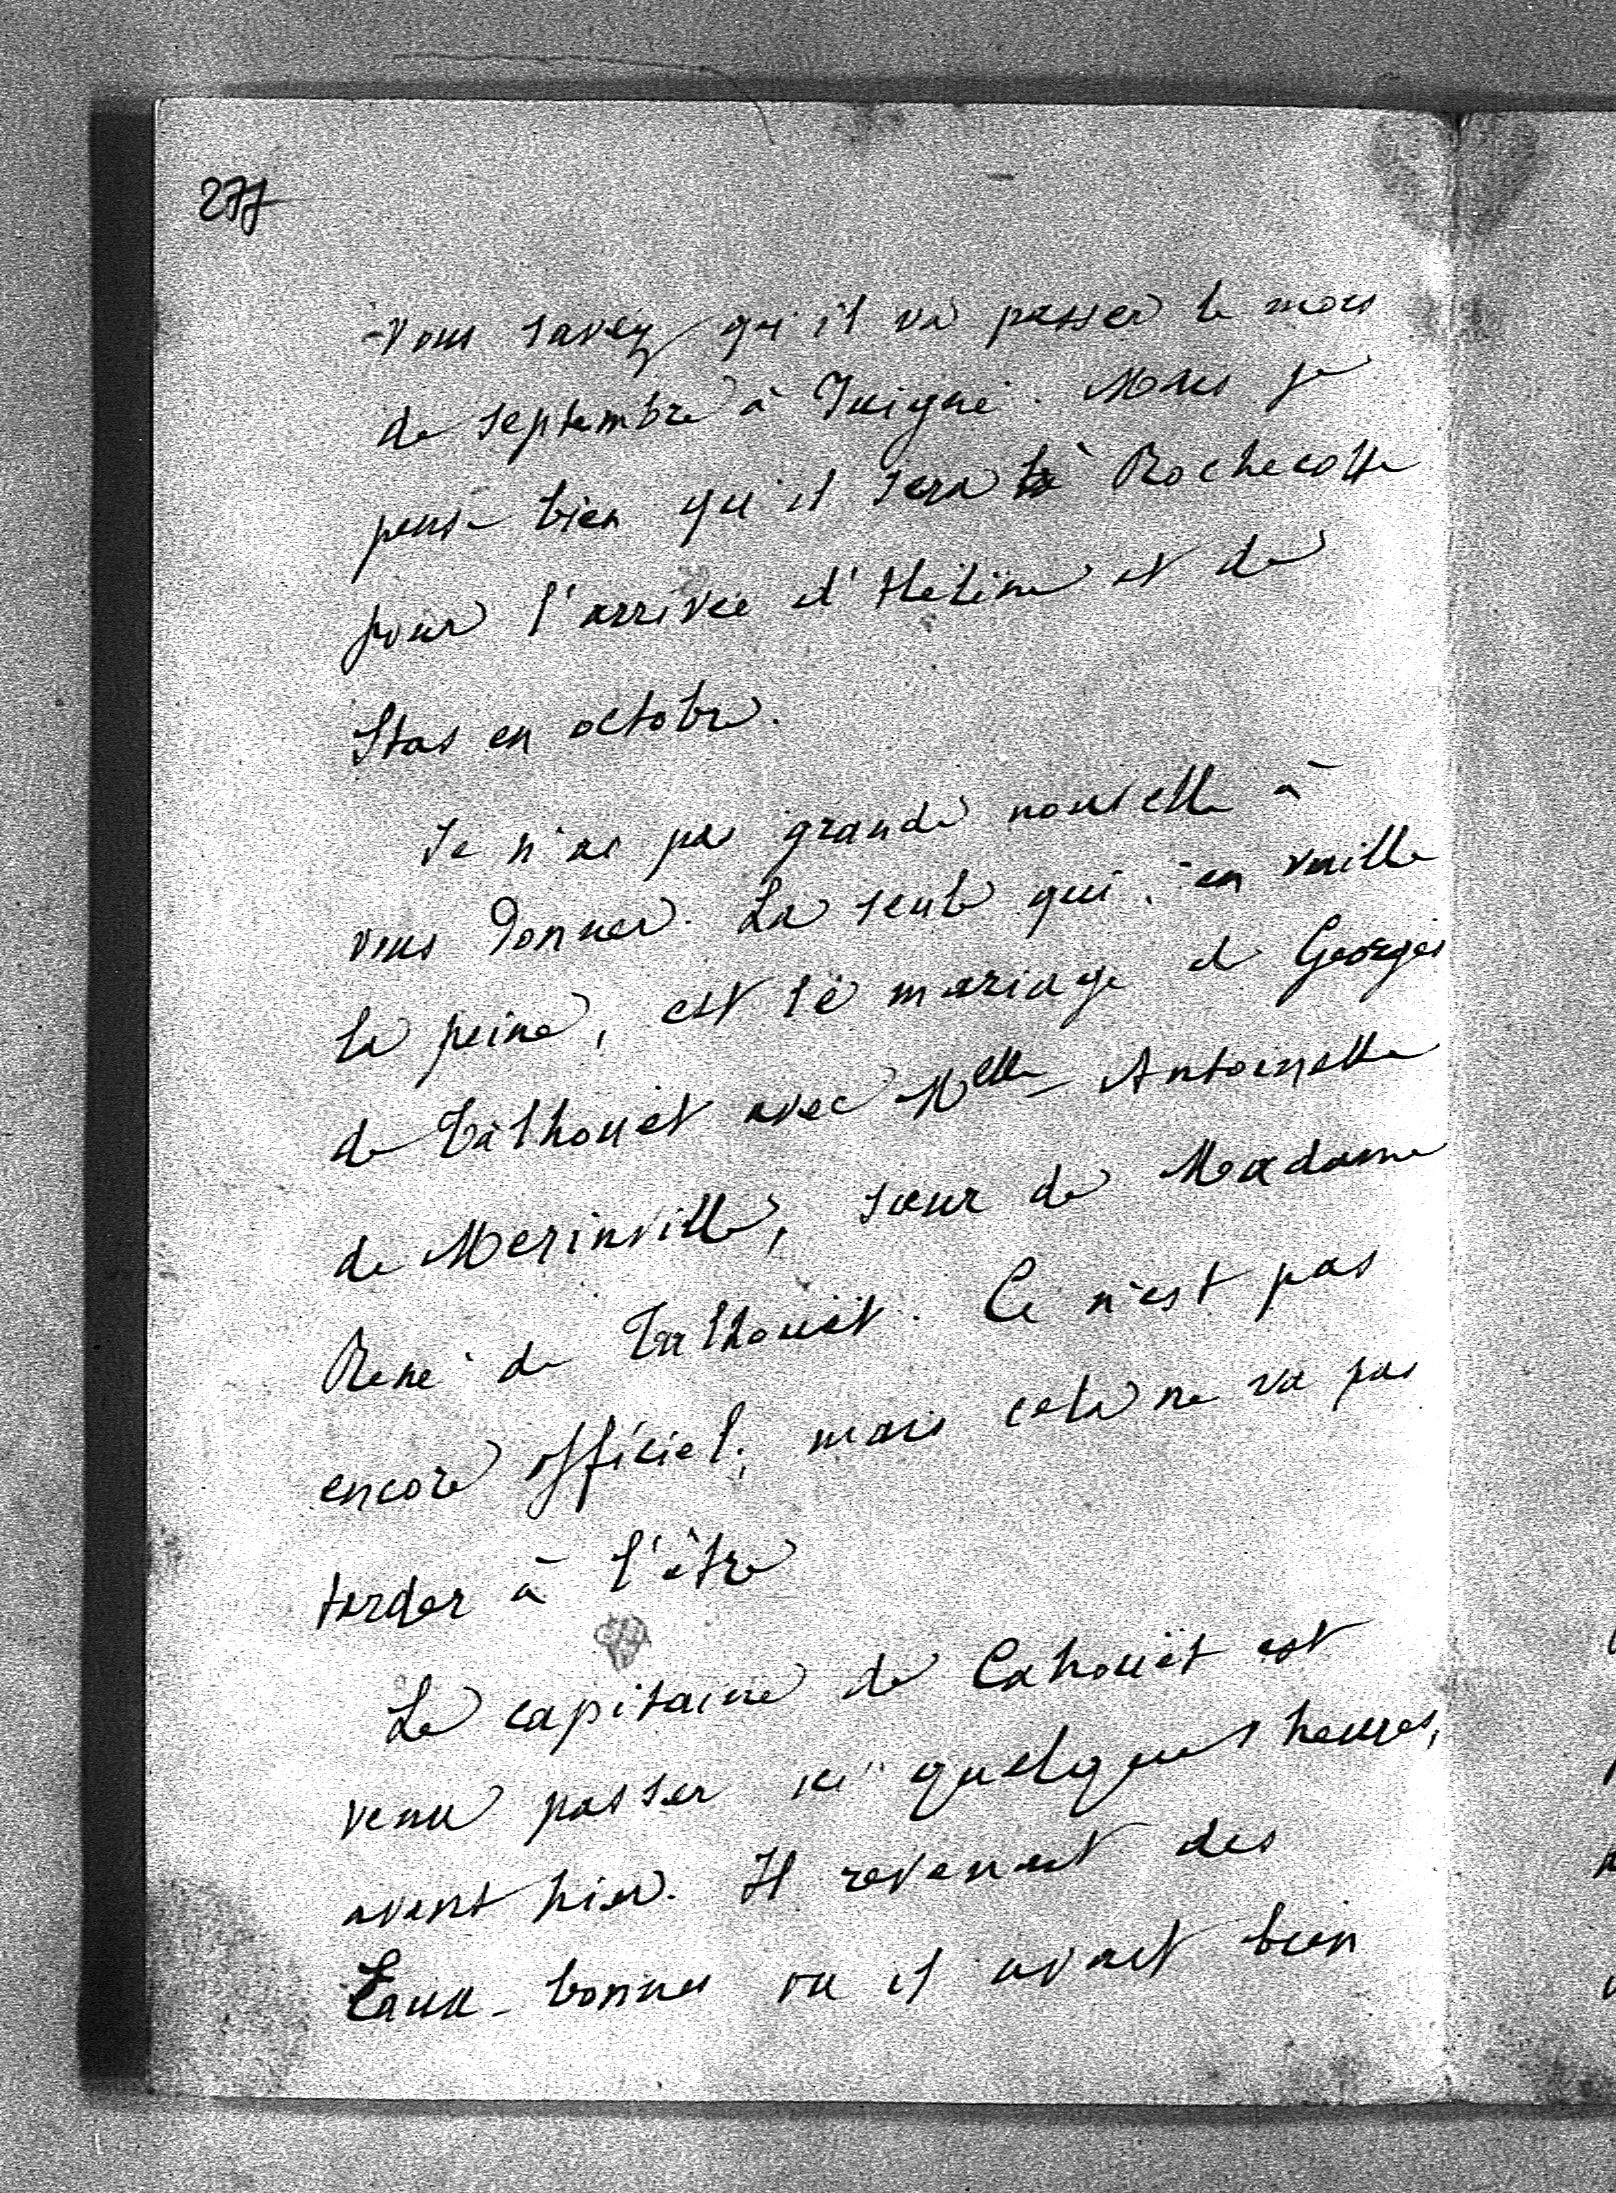 277
Vous savez qu'il va passer le mois
de septembre à Juigné. Mais je
pense bien qu'il sera à Rochecotte
pour l'arrivée d'Hélène et de
Stas en octobre.
Je n'ai pas grande nouvelle à
vous donner. La seule qui en vaille
la peine, est le mariage de Georges
de Talhouët avec Melle Antoinette
de Mérinville, sœur de Madame
René de Talhouët. Ce n'est pas
encore officiel; mais cela ne va pas
tarder à l'être
Le capitaine de Cahouët est
venu passer ici quelques heures,
avant hier. Il revenait des
Eaux-bonnes où il avait bien